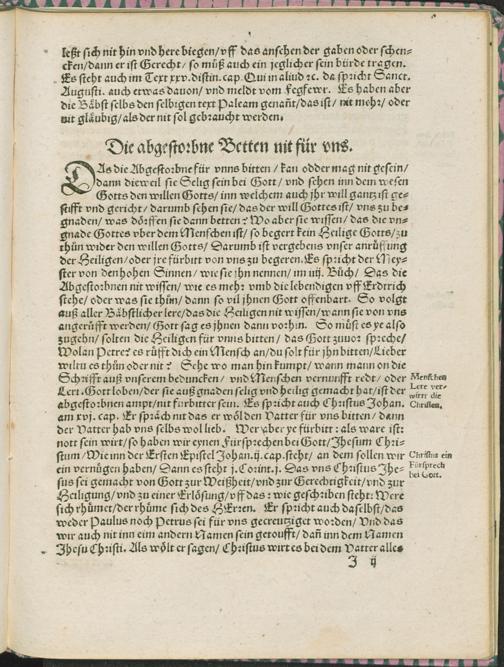 leßt sich nit hin vnd here biegen/vff das ansehen der gaben oder schen-
cken/dann er ist Gerecht/ so müß auch ein jeglicher sein bürde tragen.
Es steht auch im Text xxv.distin.cap. Qui in aliud ⁊c. da spricht Sanct.
Augusti. auch etwas dauon/ vnd meldt vom Fegfewr. Es haben aber
die Bäbst selbs den selbigen text Paleam genañt/das ist/ nit mehr/ oder
nit gläubig/als der nit sol gebraucht werden.
Die abgestorbne Betten nit für vns.
DAs die Abgestorbne für vnns bitten / kan odder mag nit gesein/
dann dieweil sie Selig sein bei Gott / vnd sehen inn dem wesen
Gotts den willen Gotts/ inn welchem auch jhr will gantz ist ge-
stifft vnd gericht/ darumb sehen sie/das der will Gottes ist/ vns zu be-
gnaden/ was dörffen sie dann betten? Wo aber sie wissen/ das die vn-
gnade Gottes vber dem Menschen ist/ so begert kein Heilige Gotts/zu
thün wider den willen Gotts/ Darumb ist vergebens vnser anrüffung
der Heiligen/ oder jre fürbitt von vns zu begeren. Es spricht der Mey-
ster von den hohen Sinnen/ wie sie jhn nennen/ im iiij. Büch/ Das die
Abgestorbnen nit wissen/ wie es mehr vmb die lebendigen vff Erdtrich
stehe/ oder was sie thün/ dann so vil jhnen Got offenbart. So volgt
auß aller Bäbstlicher lere/das die Heiligen nit wissen/wann sie von vns
angerüfft werden/ Gott sag es jhnen dann vorhin. So müst es ye also
zugehn/ solten die Heiligen für vnns bitten/ das Gott zuuor spreche/
Wolan Petre? es rüfft dich ein Mensch an/du solt für jhn bitten/Lieber
wilt u es thün oder nit? Sehe wo man hin kumpt/ wann mann on die
Schrifft auß vnserem beduncken/ vnd Menschen vernunfft redt/ oder
Lert. Gott loben/der sie auß gnaden selig vnd heilig gemacht hat/ist der
abgestorbnen ampt/nit fürbitter sein. Es spricht auch Christus Johan.
am xvj. cap. Er spräch nit das er wölden Vatter für vns bitten/ dann
der Vatter hab vns selbs wol lieb. Wer aber ye fürbitt: als ware ist:
nott sein wirt/so haben wir eynen Fürsprechen bei Gott/Jhesum Chri-
stum/Wie inn der Ersten Epistel Johan.ij.cap.steht/ an dem sollen wir
ein vernügen haben/ Dann es steht j.Corint.j. Das vns Christus Jhe-
sus sei gemacht von Gott zur Weißheit/vnd zur Gerechtigkeit/vnd zur
Heiligung/vnd zu einer Erlösung/vff das: wie geschriben steht: Were
sich rhümet/der rhüme sich des HErren. Er spricht auch daselbst/das
weder Paulus noch Petrus sei für vns gecreutziger worden/ Vnd das
wir auch nit inn eim andern Namen sein getoufft/ dañ inn dem Namen
Jhesu Christi. Als wölt er sagen/ Christus wirt es bei dem Vatter alles
J ij
Menschen
Lere ver-
wirrt die
Christen.
Christus ein
Fürsprech
bei Gott.